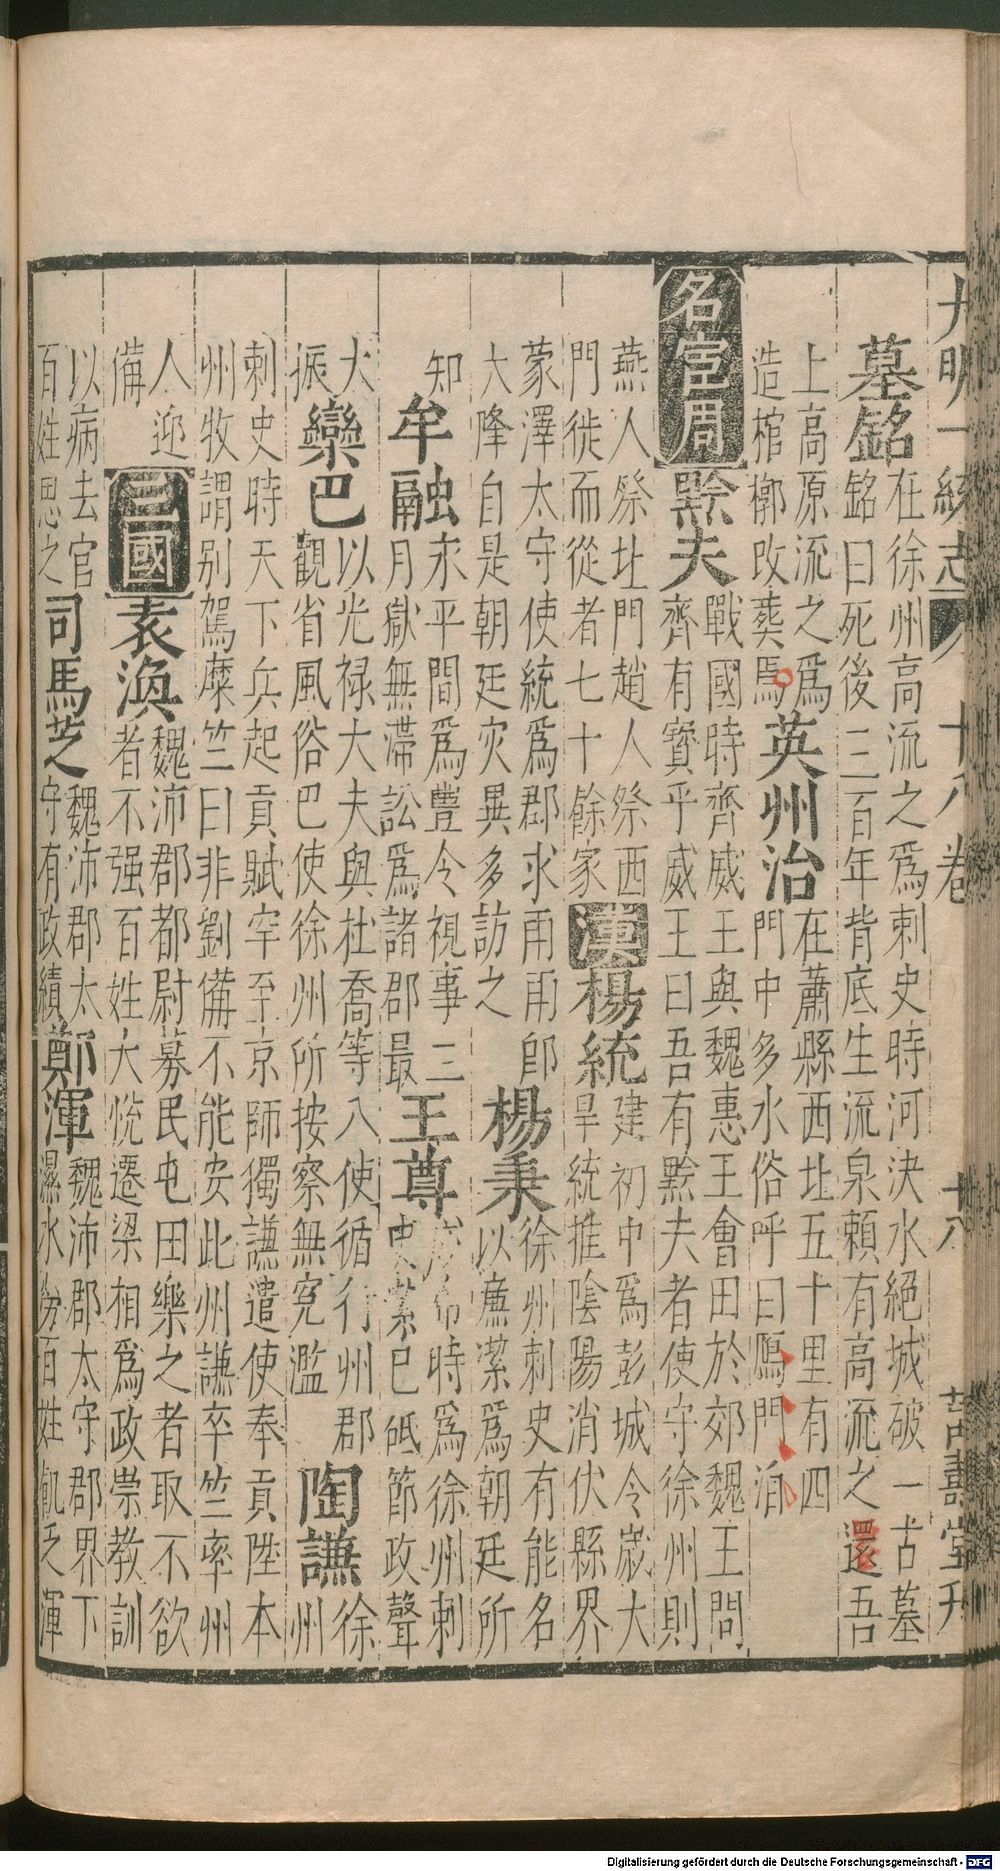 大明一統志 十八卷 十八 萬壽堂刊
墓銘
在徐州高流之爲刺史時河決水絕城破一古墓
銘曰死後三百年背底生流泉賴有高流之還吾
上高原流之爲
造棺槨改葬焉
英州治
在蕭縣西北五十里有四
門中多水俗呼曰鴈門洎
名宦周
黔夫
戰國時齊威王與魏惠王會田於郊魏王問
齊有寶乎威王曰吾有黔夫者使守徐州則
燕人祭北門趙人祭西
門徙而從者七十餘家
漢
楊統
建初中爲彭城令歲大
旱統推陰陽消伏縣界
蒙澤太守使統爲郡求雨雨卽
大降自是朝廷灾異多訪之
楊秉
徐州刺史有能名
以廉潔爲朝廷所
知
牟融
永平間爲豐令視事三
月獄無滯訟爲諸郡最
王尊
成帝時爲徐州刺
史素已砥節政聲
大
振
欒巴
以光祿大夫與杜喬等八使循行州郡
觀省風俗巴使徐州所按察無寃濫
陶謙
徐
州
刺史時天下兵起貢賦罕至京師獨謙遣使奉貢陞本
州牧謂別駕糜竺曰非劉備不能安此州謙卒竺率州
人迎
備
三國
袁渙
魏沛郡都尉募民屯田樂之者取不欲
者不强百姓大悅遷梁相爲政崇教訓
以病去官
百姓思之
司馬芝
魏沛郡太
守有政績
鄭渾
魏沛郡太守郡界下
濕水澇百姓飢乏渾
Digitalisierung gefördert durch die Deutsche Forschungsgemeinschaft - DFG